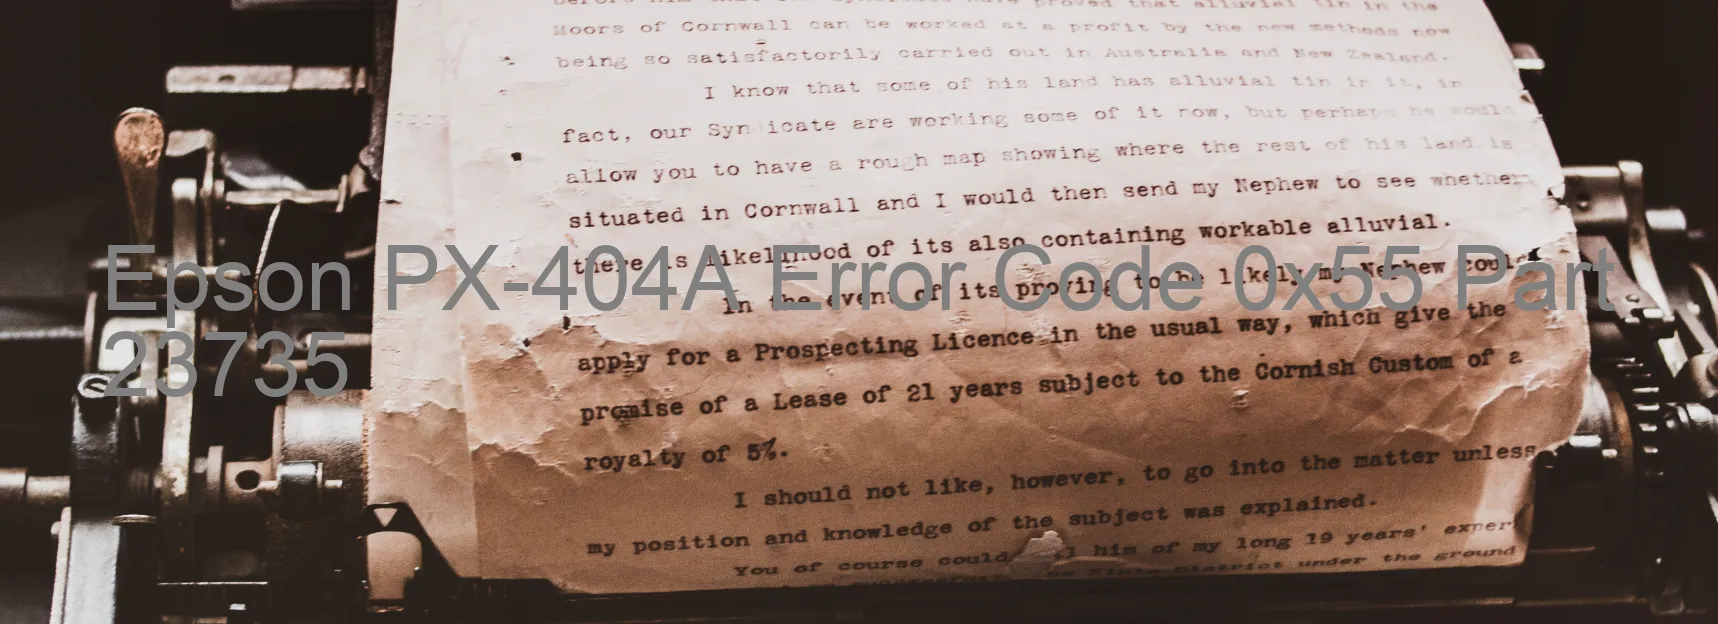 before him that our Syndicate have proved that alluvial tin in the
Moors of Cornwall can be worked at a profit by the new methods now
being so satisfactorily carried out in Australia and New Zealand.
I know that some of his land has alluvial tin in it, in
fact, our Syndicate are working some of it now, but perhaps he would
allow you to have a rough map showing where the rest of his land is
situated in Cornwall and I would then send my Nephew to see whether
there is likelihood of its also containing workable alluvial.
Epson PX-404A Error Code 0x55 Part
23735
In the event of its proving to be likely my Nephew could
apply for a Prospecting Licence in the usual way, which give the
promise of a Lease of 21 years subject to the Cornish Custom of a
royalty of 5%.
I should not like, however, to go into the matter unless
my position and knowledge of the subject was explained.
You of course could him of my long 19 years'
District under the ground